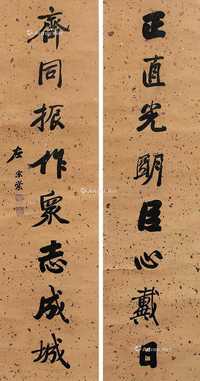 正直光明臣心戴日
齊同振作衆志成城
左宗棠